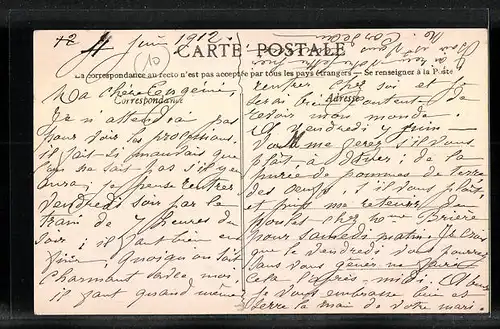 +2 4 Juin 1912.
CARTE POSTALE
La correspondance au recto n'est pas acceptée par tous les pays étrangers — Se renseigner à la Poste
10
Correspondance
Adresse
Ma chère
Je n'attendrai pas
pour voir les processions,
il fait si mauvais que
l'on ne sait pas s'il y en
aura; je pense rentrer
vendredi soir par le
train de 7 heures du
soir; il faut bien en
finir, quoiqu'on soit
charmant avec moi
il faut quand même
rentrer chez soi et je
serai bien contente de
revoir mon monde.
Vendredi 7 juin —
Vous me ferez s'il vous
plaît, à dîner, de la
purée de pommes de terre
des oeufs, s'il vous plaît,
et puis me retenir un
poulet chez Mme Brière
pour samedi matin. Je crois
que le vendredi vous pourrez
sans vous gêner me faire
cela l'après-midi.
vous embrasse bien et
serre la main de votre mari.